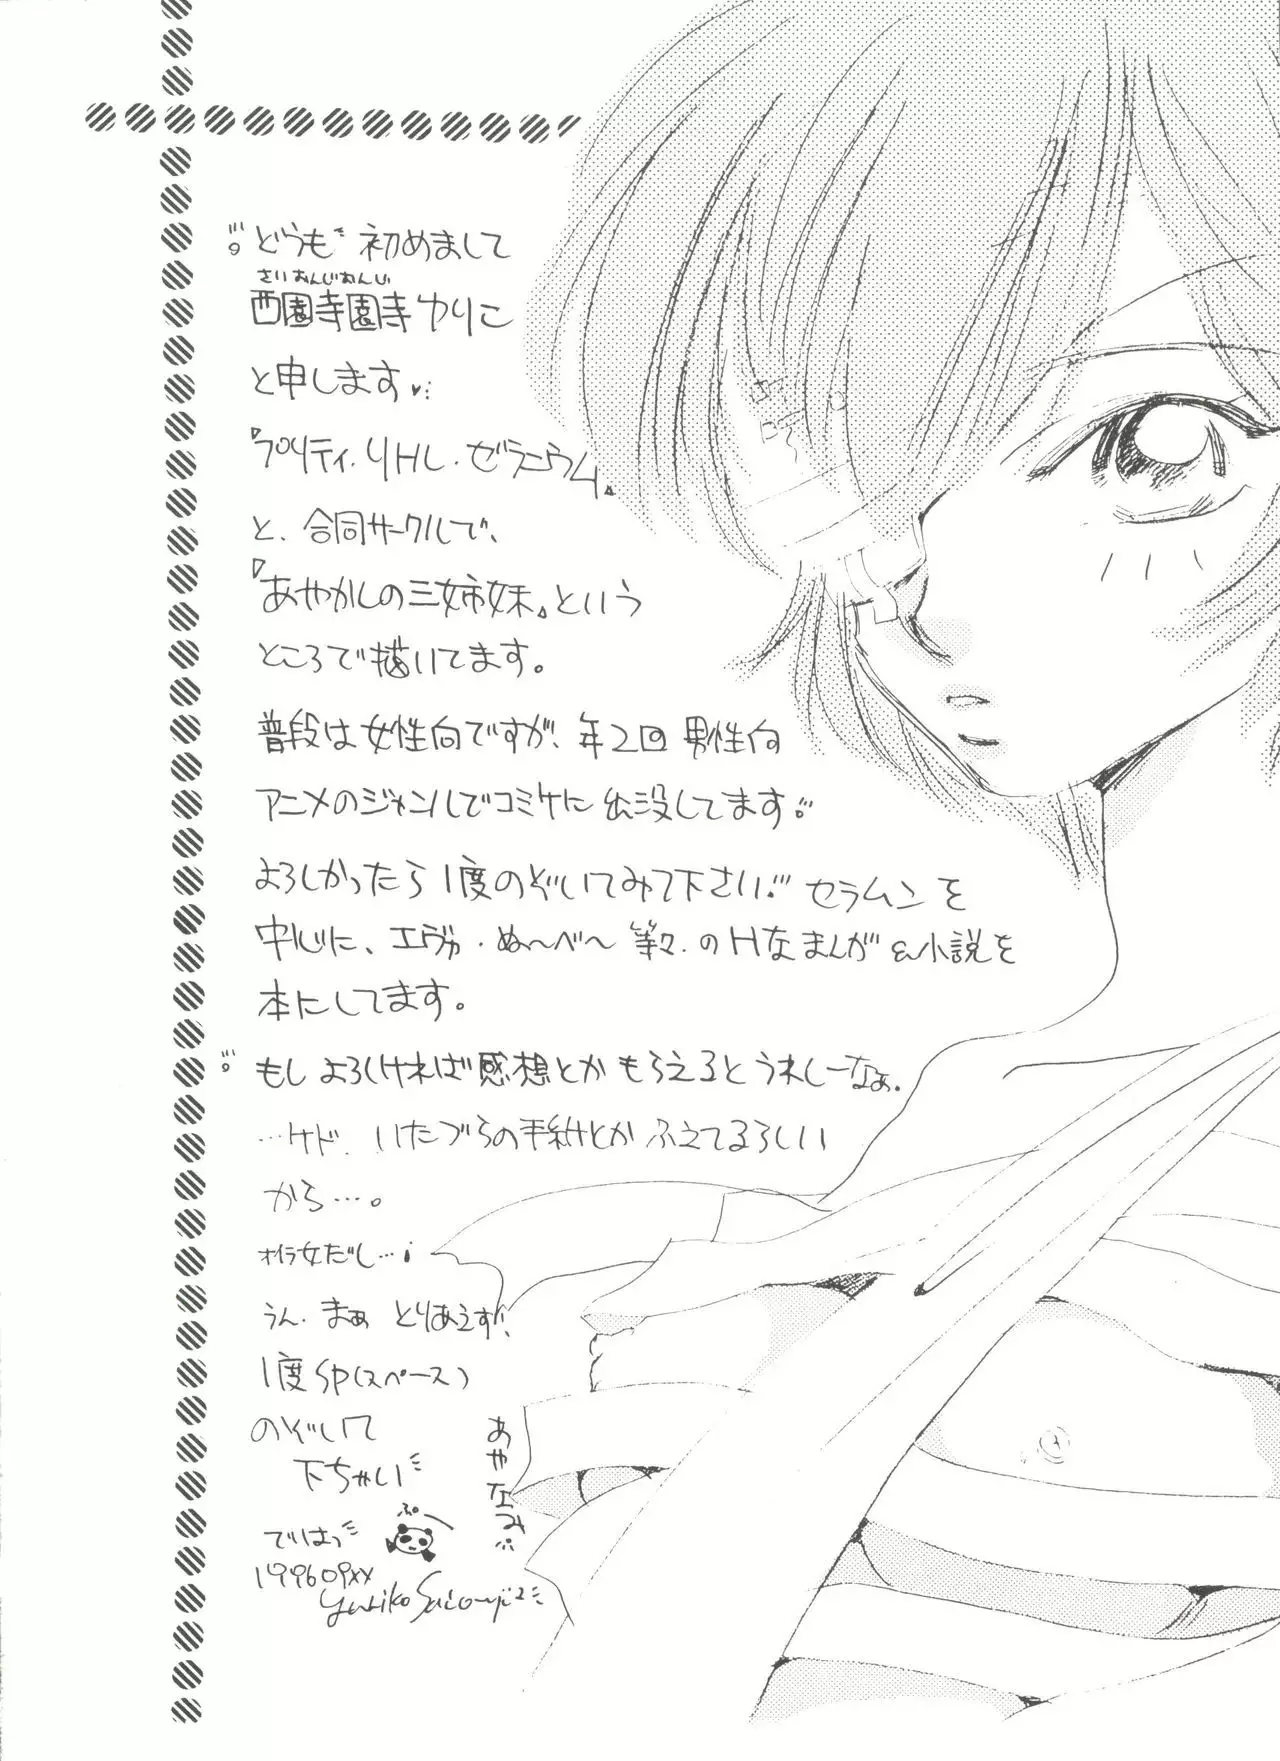 どうも 初めまして
さいおんじおんじ
西園寺園寺ゆりこ
と申します♥
『プリティ・リトル・ゼラニウム』
と、合同サークルで、
『あやかしの三姉妹』という
ところで描いてます。
普段は女性向ですが、年2回 男性向
アニメのジャンルでコミケに出没してます。
よろしかったら1度のぞいてみて下さい! セラムンを
中心に、エヴァ・ぬ〜べ〜 等々のHなまんが&小説を
本にしてます。
もしよろしければ感想とかもらえるとうれしーなぁ。
…けど、いたづらの手紙とかふえてるらしい
から…。
オイラ女だし…
うん、まぁ とりあえず!
1度SP(スペース)
のぞいて
下ちゃい
では
ぷー
199609XX
Yuriko Saionji2
あやなみ